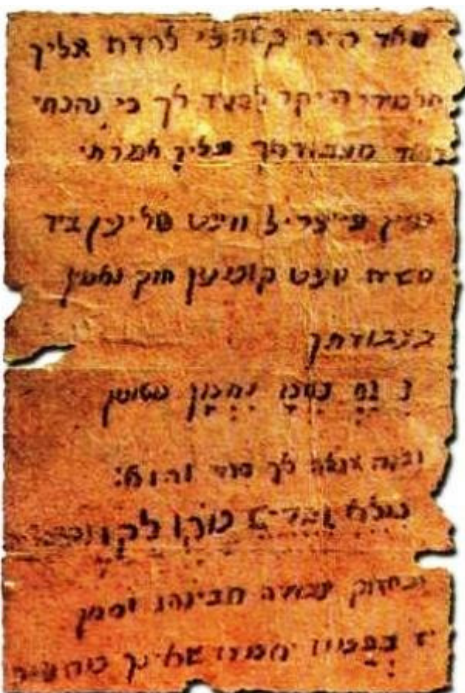 מאד היה קשה לי לרדת אליך
תלמידי היקר להגיד לך כי נהנתי
מאד מעבודתך עליך אמרתי
מיין פייערל וועט טליען ביז
משיח וועט קומען חזק ואמץ
בעבודתך
נ נַחְ נַחְמָ נַחְמָן מאומן
ובזה אגלה לך סוד והוא:
מלא וגדיש מקו לקו
ובחזוק עבודה תבינהו וסימן
יז בתמוז יאמרו שאינך מתענה